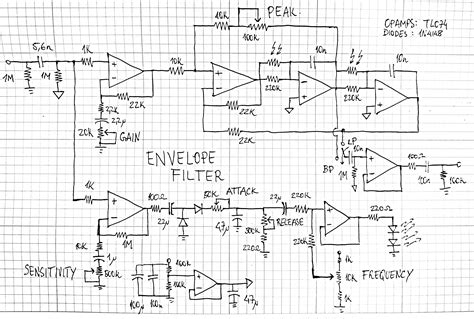 10K PEAK
100K
OPAMPS: TL074
DIODES: 1N4148
5,6n 1K 10K 10n 10n
1M 1M
22K 22K 220K 220K
2,2K
2,2µ
20K GAIN
22K
22K
LP
BP
10n
1M
100Ω
10n
100K
ENVELOPE
FILTER
1K 100Ω 22µ 50K ATTACK 22µ 220K 220Ω
1M
10K
1µ
SENSITIVITY 500K
47µ
500K RELEASE
220Ω
220K
100K
100µ 100n
47µ
1K
10K FREQUENCY
1K